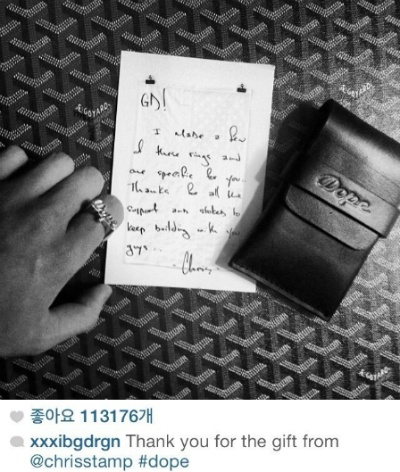 GD!
I made a few
of these rings and
one specific for you.
Thanks for all the
support and
keep building with you
guys...
- Chris
Dope
GOYARD
좋아요 113176개
xxxibgdrgn Thank you for the gift from
@chrisstamp #dope